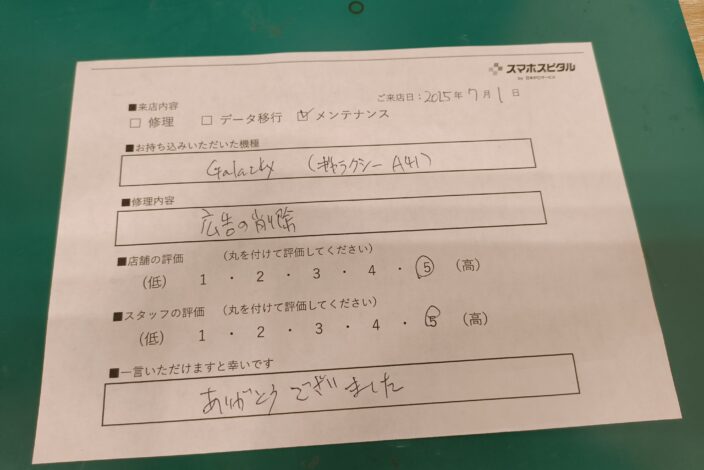 スマホスピタル
ご来店日：2025年7月1日
■来店内容
□ 修理 □ データ移行 ☑ メンテナンス
■お持ち込みいただいた機種
Galacky （ギャラクシー A41）
■修理内容
広告の削除
■店舗の評価 （丸を付けて評価してください）
（低） 1 ・ 2 ・ 3 ・ 4 ・ 5 （高）
■スタッフの評価 （丸を付けて評価してください）
（低） 1 ・ 2 ・ 3 ・ 4 ・ 5 （高）
■一言いただけますと幸いです
ありがとうございました